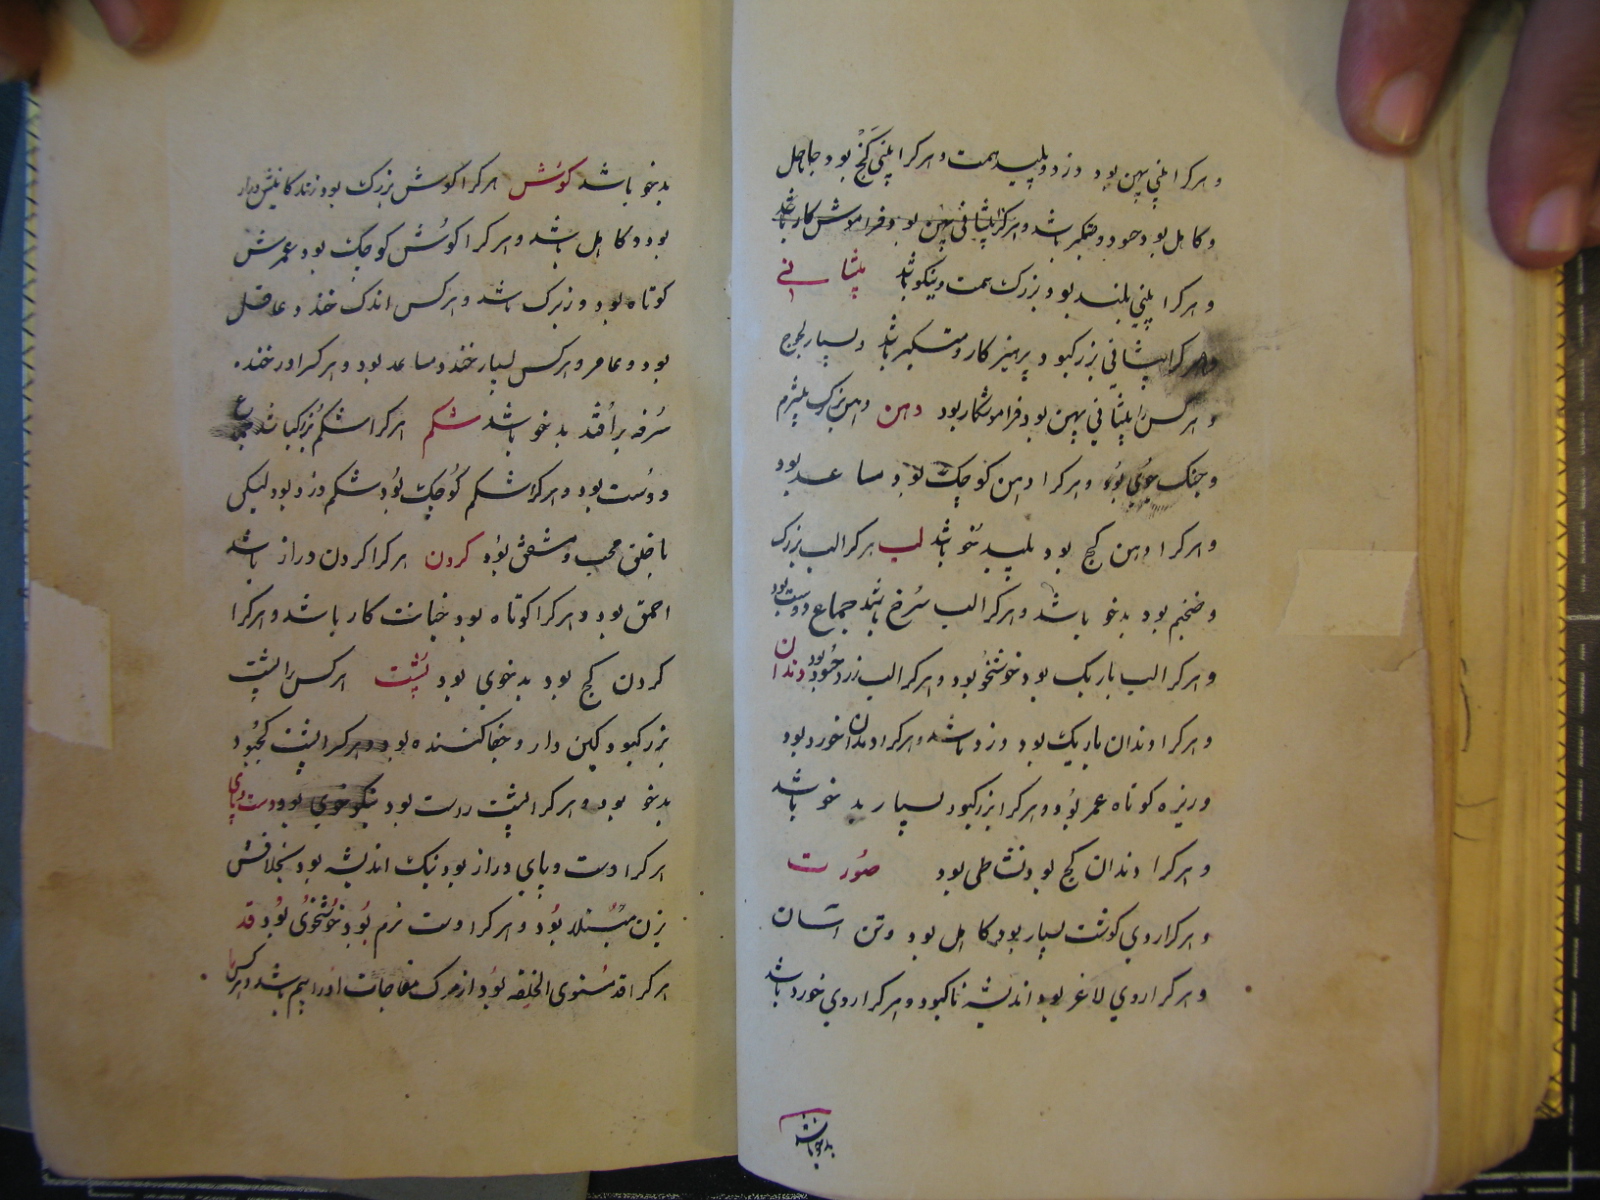 و هرکرا بینی پهن بود دزد و پلید همت و هرکرا بینی کج بود جاهل
و کاهل بود حسود و متکبر باشد و هرکرا پیشانی پهن بود و فراموش کار باشد
و هرکرا بینی بلند بود بزرک همت و نیکو باشد پیشانی
و هرکرا پیشانی بزرکبود پرهیز کار و متکبر باشد و بسیار لجوج
و هرکس را پیشانی پهن بود فراموشکار بود دهن دهن بزرک بیشرم
و جنک جوی بود و هرکرا دهن کوچک بود مساعد بود
و هرکرا دهن کج بود پلید باشد لب هرکرا لب بزرک
و ضخیم بود بدخو باشد و هرکرا لب سرخ باشد جماع دوست بود
و هرکرا لب باریک بود خوشخو بود و هرکرا لب زرد حسود بود دندان
و هرکرا دندان باریک بود دزد باشد و هرکرا دندان خورد بود
و ریزه کوتاه عمر بود و هرکرا بزرکبود بسیار بدخو باشد
و هرکرا دندان کج بود نشاطی بود صورت
و هرکرا روی کوشت بسیار بود کاهل بود و تن اسان
و هرکرا روی لاغر بود اندیشه ناکبود و هرکرا روی خورد باشد
بدخو باشد
بدخو باشد کوش هرکرا کوش بزرک بود زندکانیش دراز
بود و کاهل باشد و هرکرا کوش کوچک بود عمرش
کوتاه بود و زیرک باشد و هرکس اندک خندد عاقل
بود و هرکس بسیار خندد مساعد بود و هرکرا در خنده
سرفه برافتد بدخو باشد شکم هرکرا شکم بزرک باشد
دوست بود و هرکرا شکم کوچک بود شکم دزد بود لیکن
با خلق محب و مشفق بود کردن هرکرا کردن دراز باشد
احمق بود و هرکرا کوتاه بود خیانت کار باشد و هرکرا
کردن کج بود بدخوی بود پشت هرکس را پشت
بزرکبود کین دار و جفا کننده بود و هرکرا پشت کجبود
بدخو بود و هرکرا پشت راست بود نیکو خوی بود دست و پای
هرکرا دست و پای دراز بود نیک اندیشه بود بخلافش
بزن مبتلا بود و هرکرا دست نرم بود خوشخوی بود قد
هرکرا قد مستوی الخلقه بود از مرک مفاجات او را بیم باشد و هرکس را